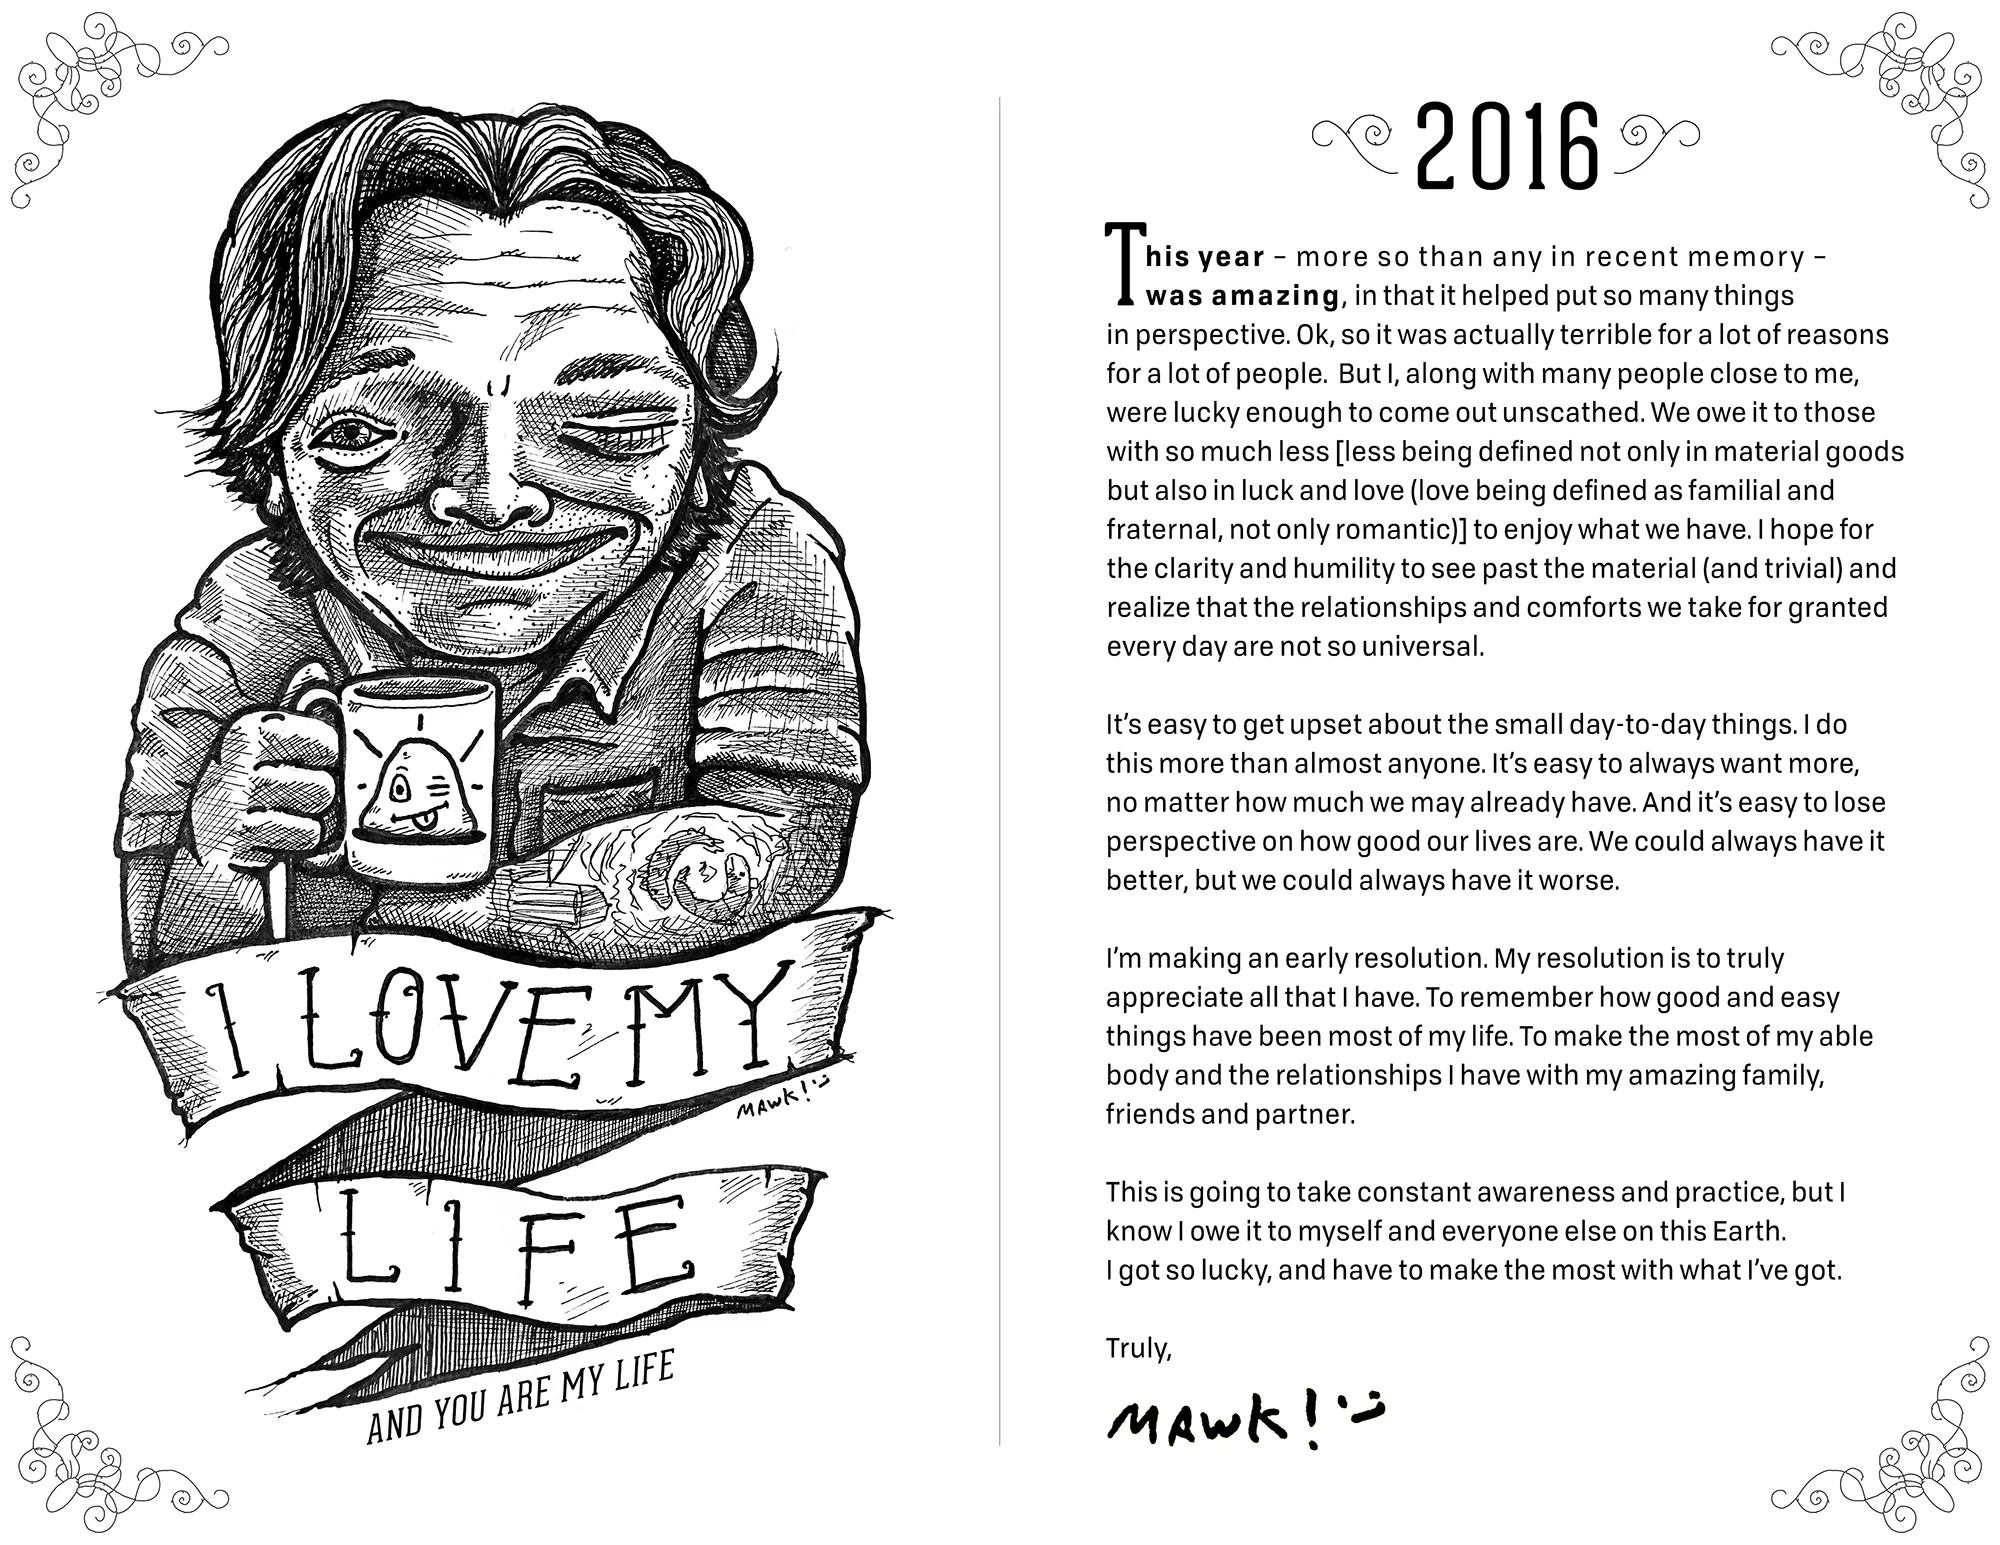 I LOVE MY
MAWK!
LIFE
AND YOU ARE MY LIFE
2016
This year – more so than any in recent memory –
was amazing, in that it helped put so many things
in perspective. Ok, so it was actually terrible for a lot of reasons
for a lot of people.  But I, along with many people close to me,
were lucky enough to come out unscathed. We owe it to those
with so much less [less being defined not only in material goods
but also in luck and love (love being defined as familial and
fraternal, not only romantic)] to enjoy what we have. I hope for
the clarity and humility to see past the material (and trivial) and
realize that the relationships and comforts we take for granted
every day are not so universal.
It’s easy to get upset about the small day-to-day things. I do
this more than almost anyone. It’s easy to always want more,
no matter how much we may already have. And it’s easy to lose
perspective on how good our lives are. We could always have it
better, but we could always have it worse.
I’m making an early resolution. My resolution is to truly
appreciate all that I have. To remember how good and easy
things have been most of my life. To make the most of my able
body and the relationships I have with my amazing family,
friends and partner.
This is going to take constant awareness and practice, but I
know I owe it to myself and everyone else on this Earth.
I got so lucky, and have to make the most with what I’ve got.
Truly,
MAWK!